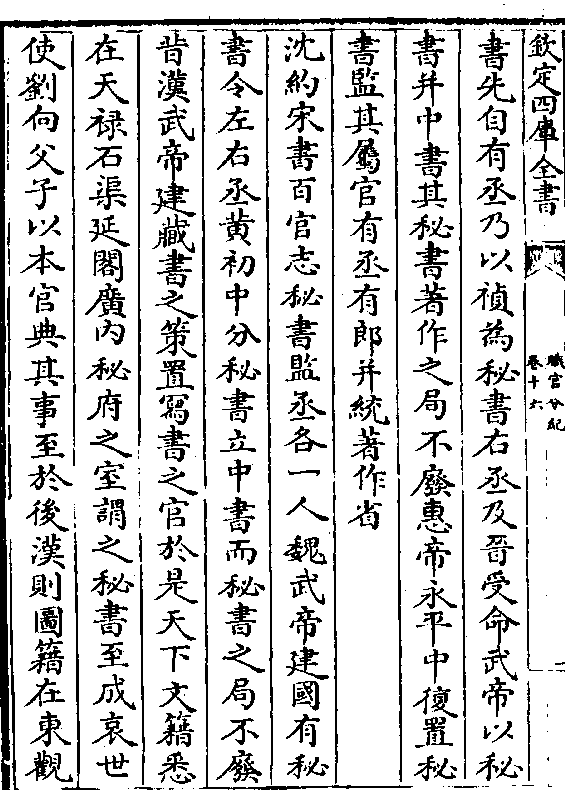 欽定四庫全書
職官分紀
卷十六
書先自有丞乃以禎為秘書右丞及晉受命武帝以秘
書并中書其秘書著作之局不廢惠帝永平中復置秘
書監其屬官有丞有郎并統著作省
沈約宋書百官志秘書監丞各一人魏武帝建國有秘
書令左右丞黄初中分秘書立中書而秘書之局不廢
昔漢武帝建藏書之策置寫書之官於是天下文籍悉
在天禄石渠延閣廣内秘府之室謂之秘書至成哀世
使劉向父子以本官典其事至於後漢則圖籍在東觀